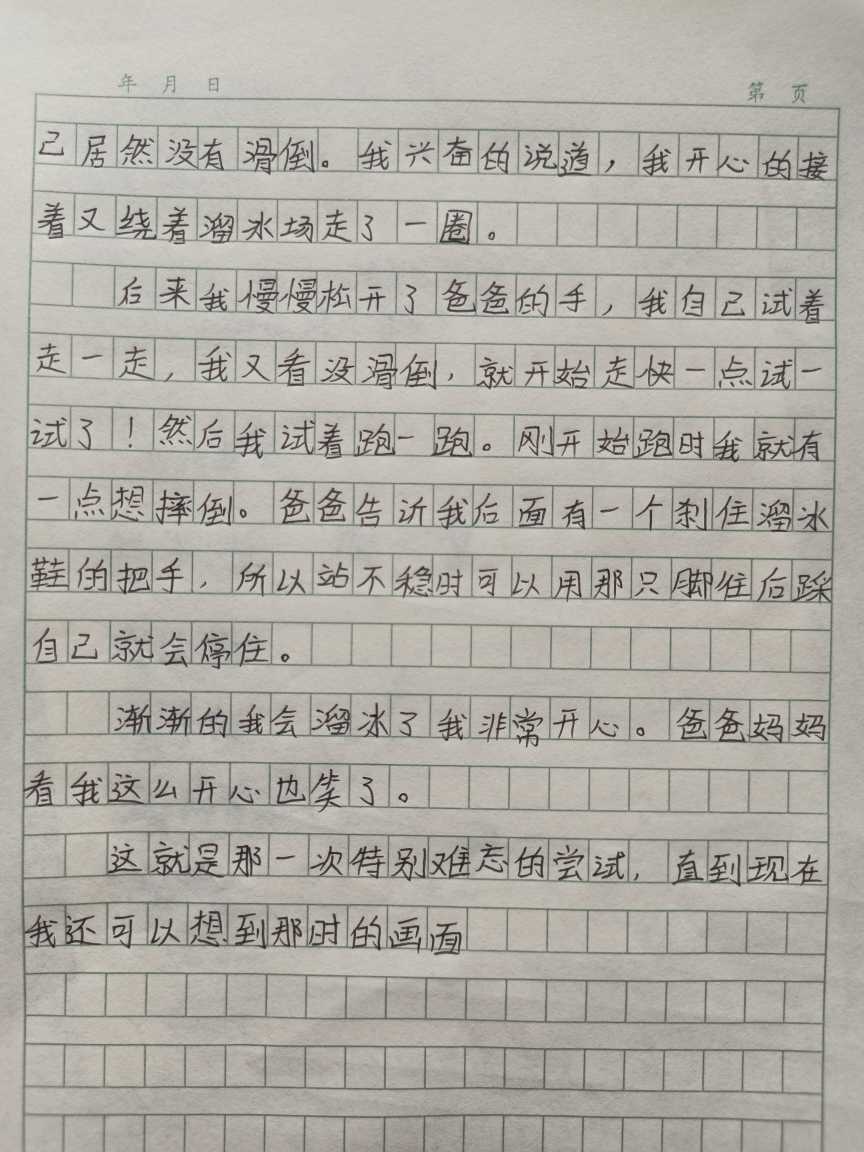 年 月 日
第 页
己居然没有滑倒。我兴奋的说道，我开心的接
着又绕着溜冰场走了一圈。
后来我慢慢松开了爸爸的手，我自己试着
走一走，我又看没滑倒，就开始走快一点试一
试了！然后我试着跑一跑。刚开始跑时我就有
一点想摔倒。爸爸告诉我后面有一个刹住溜冰
鞋的把手，所以站不稳时可以用那只脚往后踩
自己就会停住。
渐渐的我会溜冰了我非常开心。爸爸妈妈
看我这么开心也笑了。
这就是那一次特别难忘的尝试，直到现在
我还可以想到那时的画面